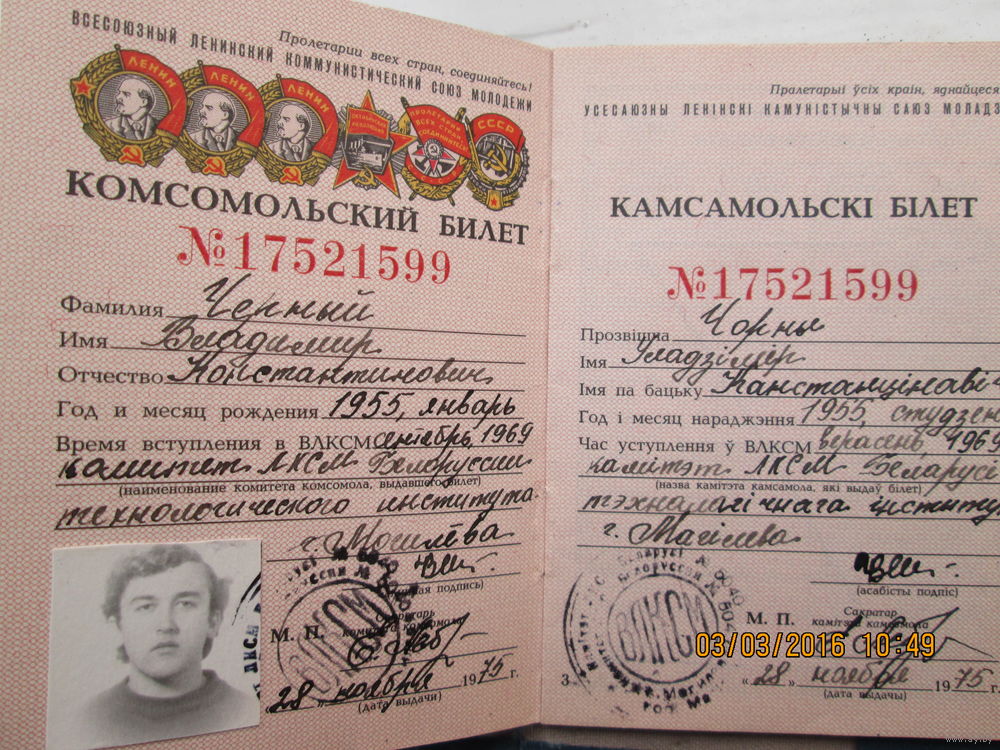 ВСЕСОЮЗНЫЙ ЛЕНИНСКИЙ КОММУНИСТИЧЕСКИЙ СОЮЗ МОЛОДЕЖИ
Пролетарии всех стран, соединяйтесь!
ЛЕНИН
ЛЕНИН
ЛЕНИН
ОКТЯБРЬСКАЯ РЕВОЛЮЦИЯ
ПРОЛЕТАРИИ ВСЕХ СТРАН СОЕДИНЯЙТЕСЬ!
СССР
СССР
КОМСОМОЛЬСКИЙ БИЛЕТ
№17521599
Фамилия Черный
Имя Владимир
Отчество Константинович
Год и месяц рождения 1955, январь
Время вступления в ВЛКСМ сентябрь, 1969
комитет ЛКСМ Белоруссии
(наименование комитета комсомола, выдавшего билет)
технологического института
г. Могилёва
(личная подпись)
М. П.
Секретарь
комитета комсомола
ВЛКСМ
"28" ноября 1975 г.
(дата выдачи)
Пралетарыі ўсіх краін, яднайцеся
УСЕСАЮЗНЫ ЛЕНІНСКІ КАМУНІСТЫЧНЫ САЮЗ МОЛАДЗ
КАМСАМОЛЬСКІ БІЛЕТ
№17521599
Прозвішча Чорны
Імя Уладзімір
Імя па бацьку Канстанцінавіч
Год і месяц нараджэння 1955, студзен
Час уступлення ў ВЛКСМ верасень, 1969
камітэт ЛКСМ Беларусі
(назва камітэта камсамола, які выдаў білет)
тэхналагічнага інстыту
г. Магілева
(асабісты подпіс)
М. П.
Сакратар
камітэта камсамола
ВЛКСМ
"28" ноября 1975 г.
(дата выдачы)
03/03/2016 10:49
www.ay.by